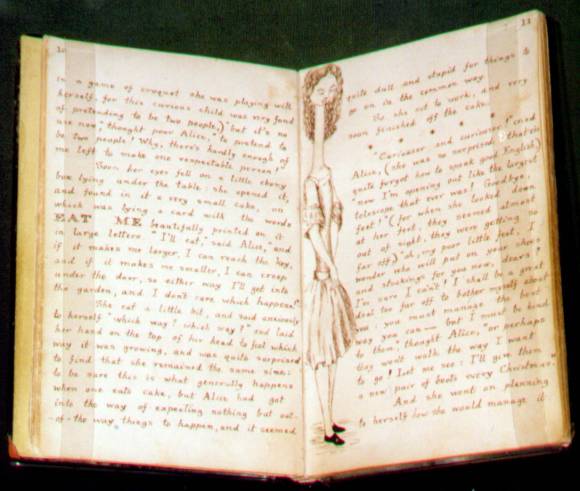 10
in a game of croquet she was playing with
herself, for this curious child was very fond
of pretending to be two people,) "but it's no
use now," thought poor Alice, "to pretend to
be two people! Why, there's hardly enough of
me left to make one respectable person!"
Soon her eyes fell on a little ebony
box lying under the table: she opened it,
and found in it a very small cake, on
which was lying a card with the words
EAT ME beautifully printed on it
in large letters. "I'll eat," said Alice, "and
if it makes me larger, I can reach the key,
and if it makes me smaller, I can creep
under the door, so either way I'll get into
the garden, and I don't care which happens!"
She eat a little bit, and said anxiously
to herself "which way? which way?" and laid
her hand on the top of her head to feel which
way it was growing, and was quite surprised
to find that she remained the same size:
to be sure this is what generally happens
when one eats cake, but Alice had got
into the way of expecting nothing but out-
-of-the way things to happen, and it seemed
11
quite dull and stupid for things to
go on in the common way.
So she set to work, and very
soon finished off the cake.
* * * * *
"Curiouser and curiouser!" cried
Alice, (she was so surprised that she
quite forgot how to speak good English,)
"now I'm opening out like the largest
telescope that ever was! Goodbye,
feet!" (for when she looked down
at her feet, they seemed almost
out of sight, they were getting so
far off,) "oh, my poor little feet, I
wonder who will put on your shoes
and stockings for you now, dears?
I'm sure I can't! I shall be a great
deal too far off to bother myself about
you: you must manage the best
way you can — but I must be kind
to them," thought Alice, "or perhaps
they won't walk the way I want
to go! Let me see: I'll give them
a new pair of boots every Christmas."
And she went on planning
to herself how she would manage it